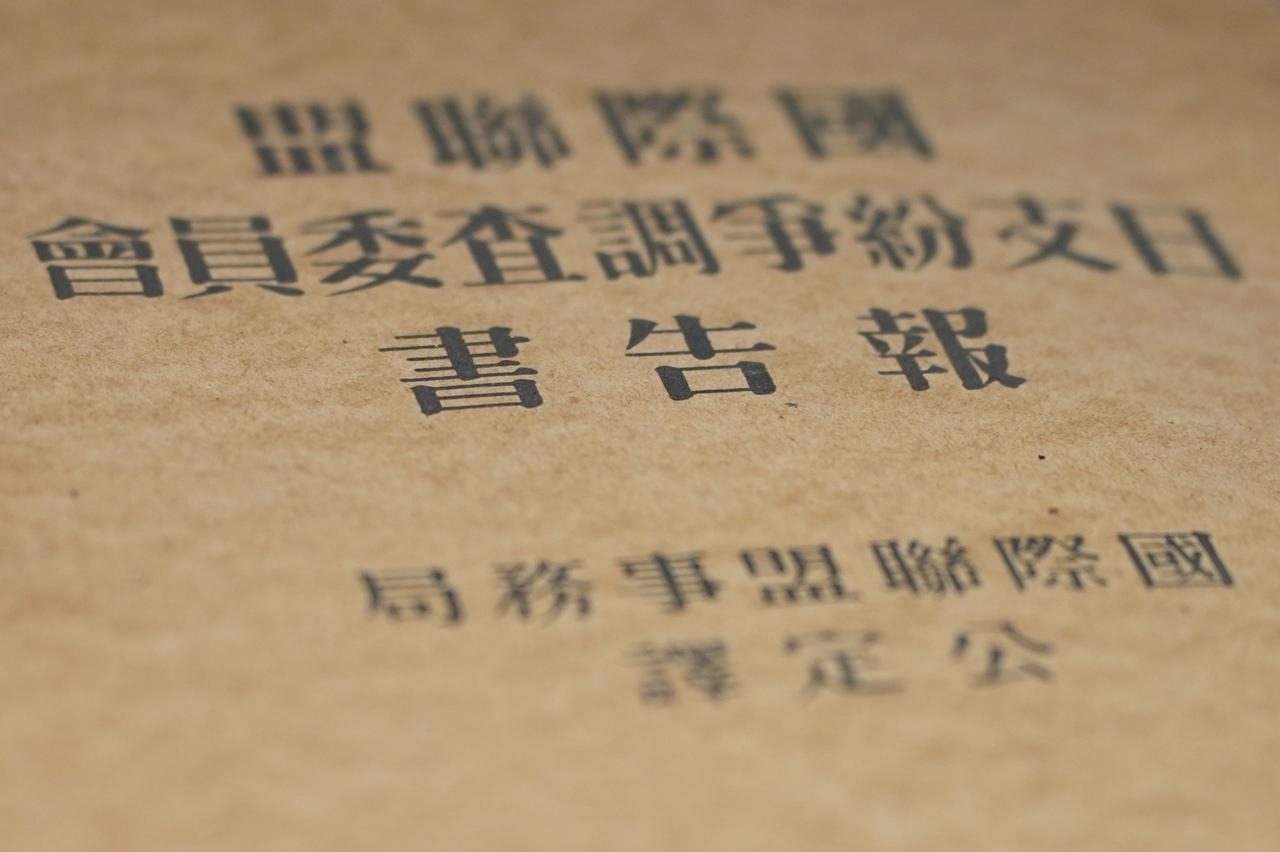 國際聯盟
日支紛爭調査委員會
報告書
國際聯盟事務局
公定譯